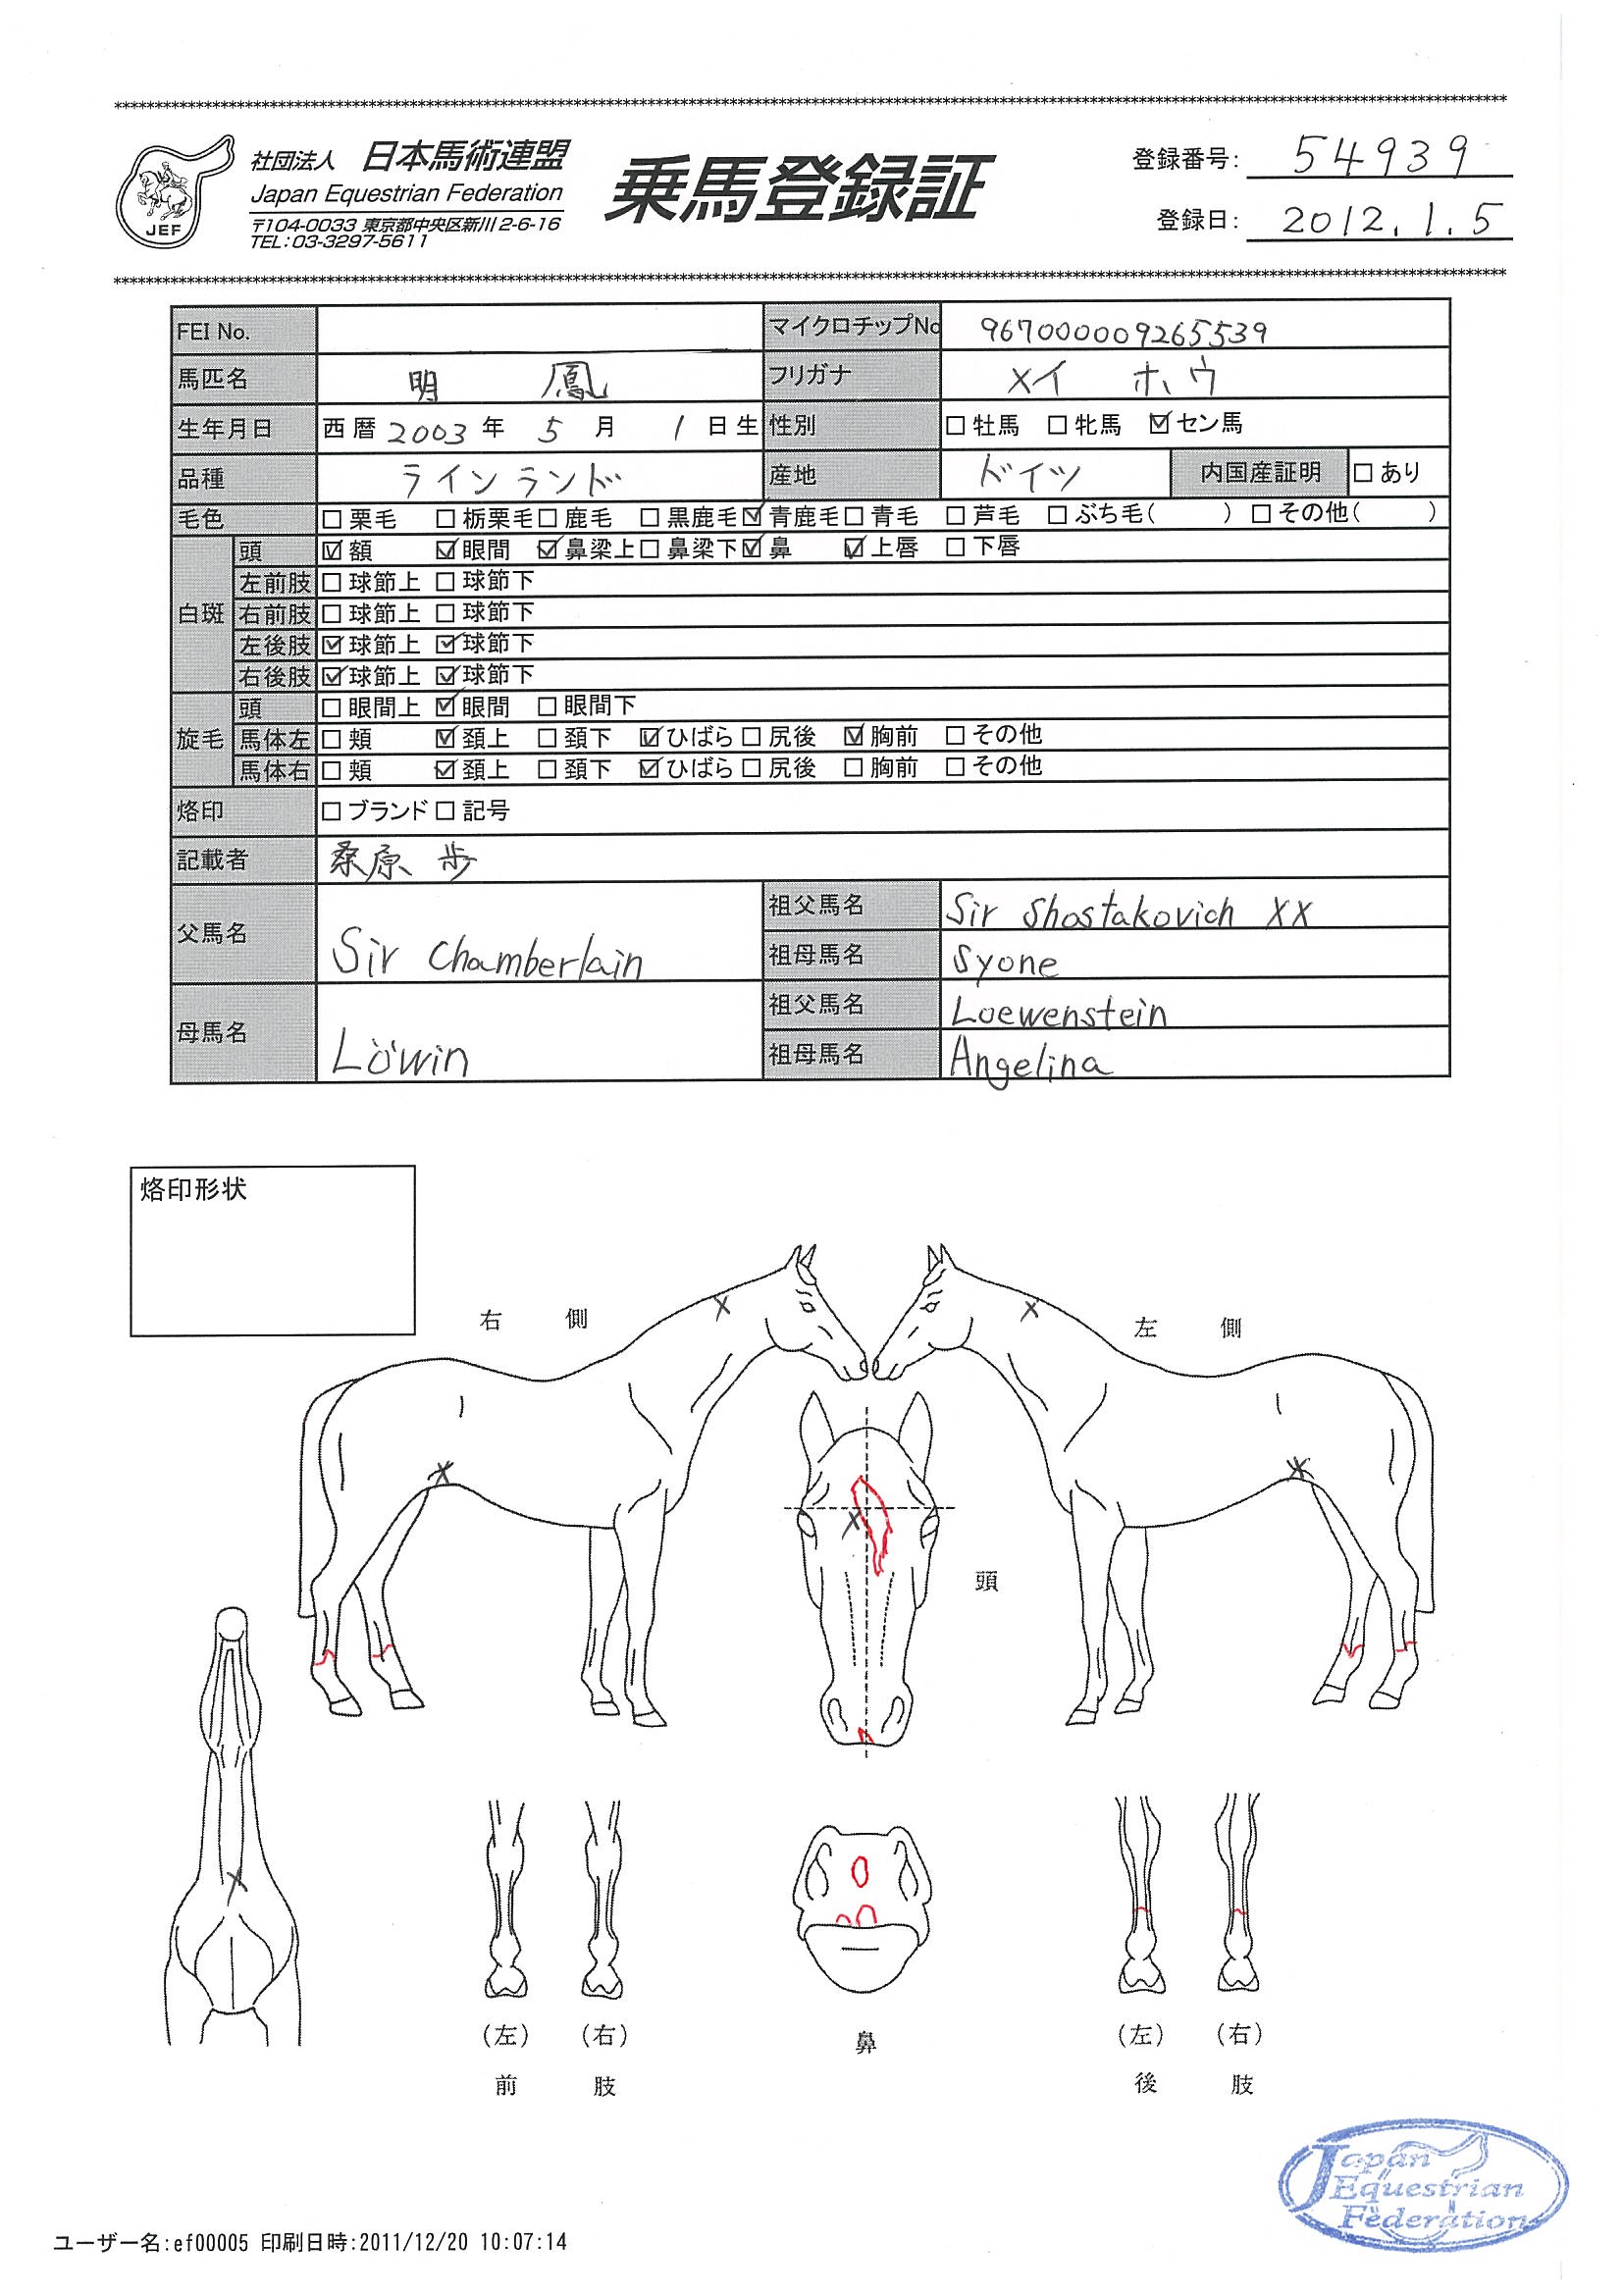 社団法人 日本馬術連盟
Japan Equestrian Federation
〒104-0033 東京都中央区新川2-6-16
TEL:03-3297-5611
JEF
乗馬登録証
登録番号: 54939
登録日: 2012.1.5
FEI No. マイクロチップNo 967000009265539
馬匹名 明 鳳 フリガナ メイ ホウ
生年月日 西暦 2003 年 5 月 1 日生 性別 □牡馬 □牝馬 ☑セン馬
品種 ラインランド 産地 ドイツ 内国産証明 □あり
毛色 □栗毛 □栃栗毛 □鹿毛 □黒鹿毛 ☑青鹿毛 □青毛 □芦毛 □ぶち毛( ) □その他( )
白斑 頭 ☑額 ☑眼間 ☑鼻梁上 □鼻梁下 ☑鼻 ☑上唇 □下唇
左前肢 □球節上 □球節下
右前肢 □球節上 □球節下
左後肢 ☑球節上 ☑球節下
右後肢 ☑球節上 ☑球節下
旋毛 頭 □眼間上 ☑眼間 □眼間下
馬体左 □頬 ☑頚上 □頚下 ☑ひばら □尻後 ☑胸前 □その他
馬体右 □頬 ☑頚上 □頚下 ☑ひばら □尻後 □胸前 □その他
烙印 □ブランド □記号
記載者 桑原 歩
父馬名 Sir Chamberlain 祖父馬名 Sir Shostakovich XX
祖母馬名 Syone
母馬名 Löwin 祖父馬名 Loewenstein
祖母馬名 Angelina
烙印形状
右 側
左 側
頭
(左) (右)
前 肢
鼻
(左) (右)
後 肢
Japan
Equestrian
Federation
ユーザー名:ef00005 印刷日時:2011/12/20 10:07:14